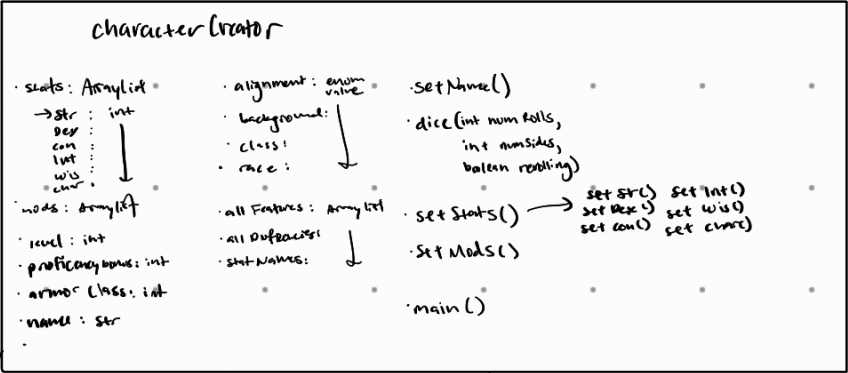 characterCreator
· stats: ArrayList
→ Str : int
Dex :
con :
Int :
wis :
char :
· mods: ArrayList
· level: int
· proficencybonus: int
· armor Class: int
· name: str
·
· alignment: enum value
· background:
· class:
· race:
· all Features: ArrayList
· all
· statNames:
· setName()
· dice(int numRolls,
int numSides,
bolean rerolling)
· setStats() →
set Str() set Int()
set Dex() set wis()
set con() set char()
· Set Mods()
· main()